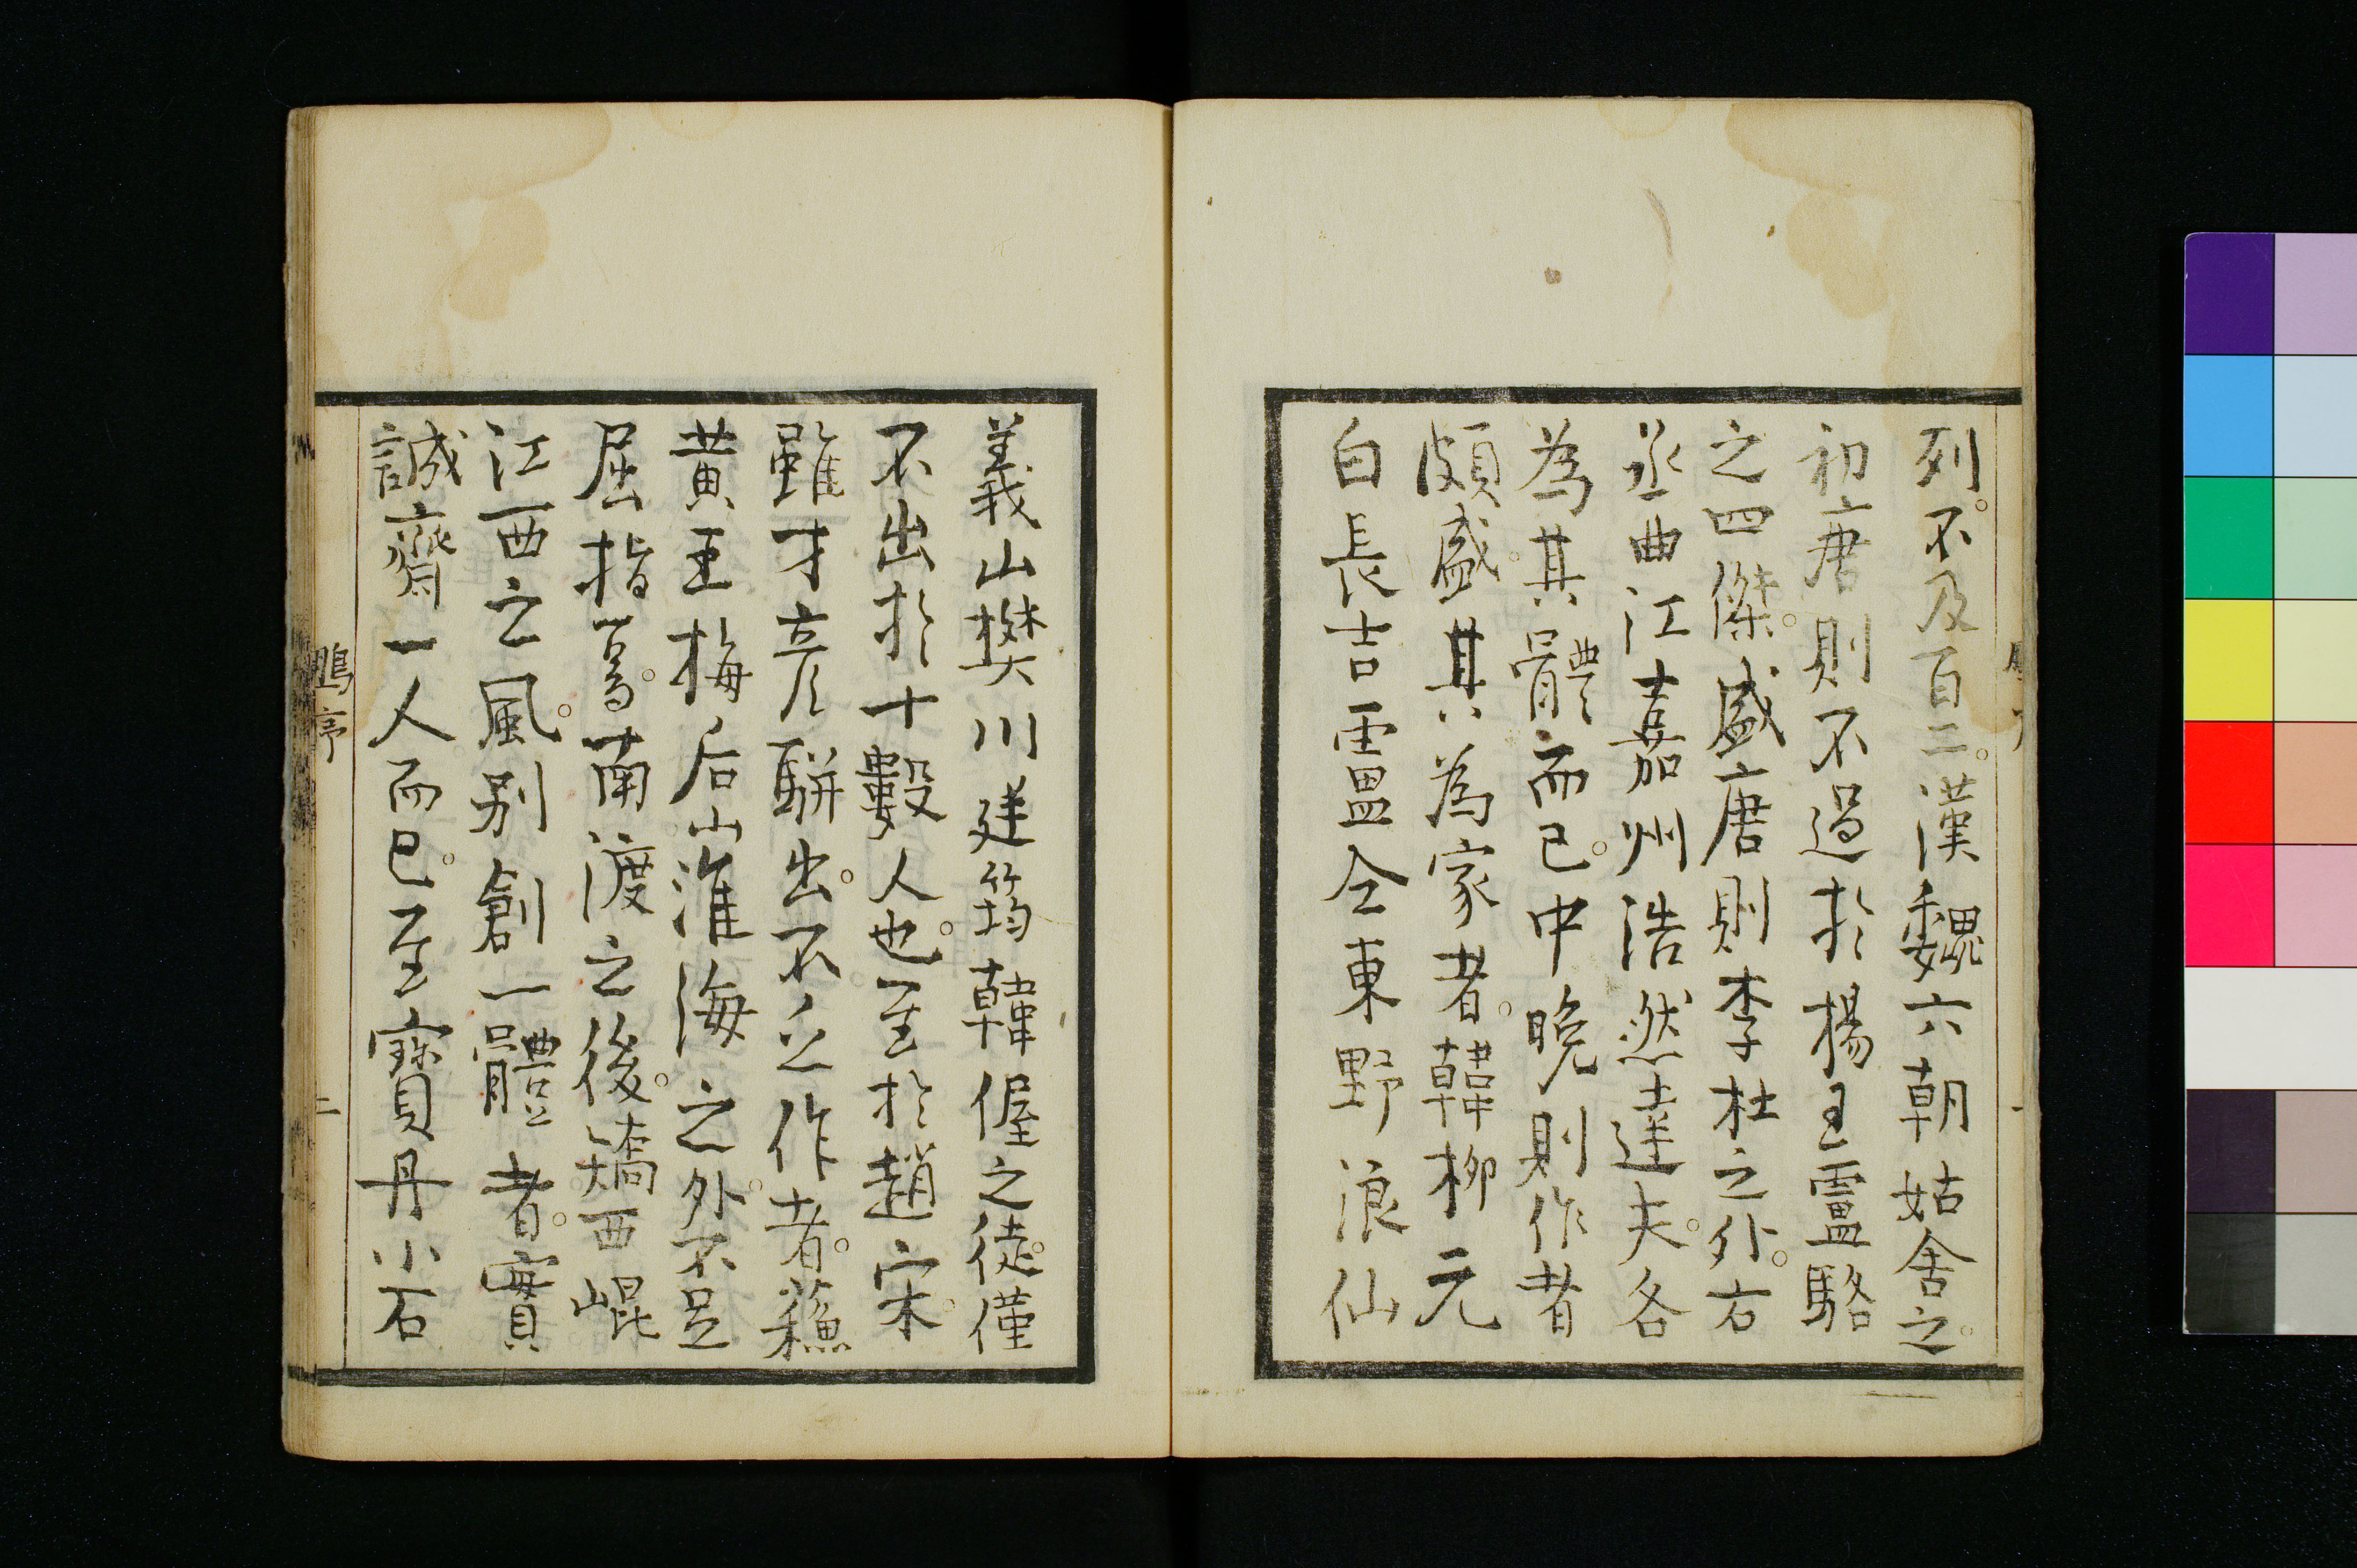 列。不及百二。漢魏六朝姑舍之。
初唐則不過於楊王盧駱
之四傑。盛唐則李杜之外。右
丞曲江嘉州浩然達夫。各
為其體而已。中晚則作者
頗盛。其為家者。韓柳元
白長吉盧仝東野浪仙
義山樊川建筠韓偓之徒。僅
不出於十數人也。至於趙宋。
雖才彦駢出。不乏作者。蘓
黄王梅后山淮海之外。不足
屈指焉。南渡之後。矯西崐
江西之風。别創一體者。實
誠齋一人而已。至寶丹小石
鴨序
二